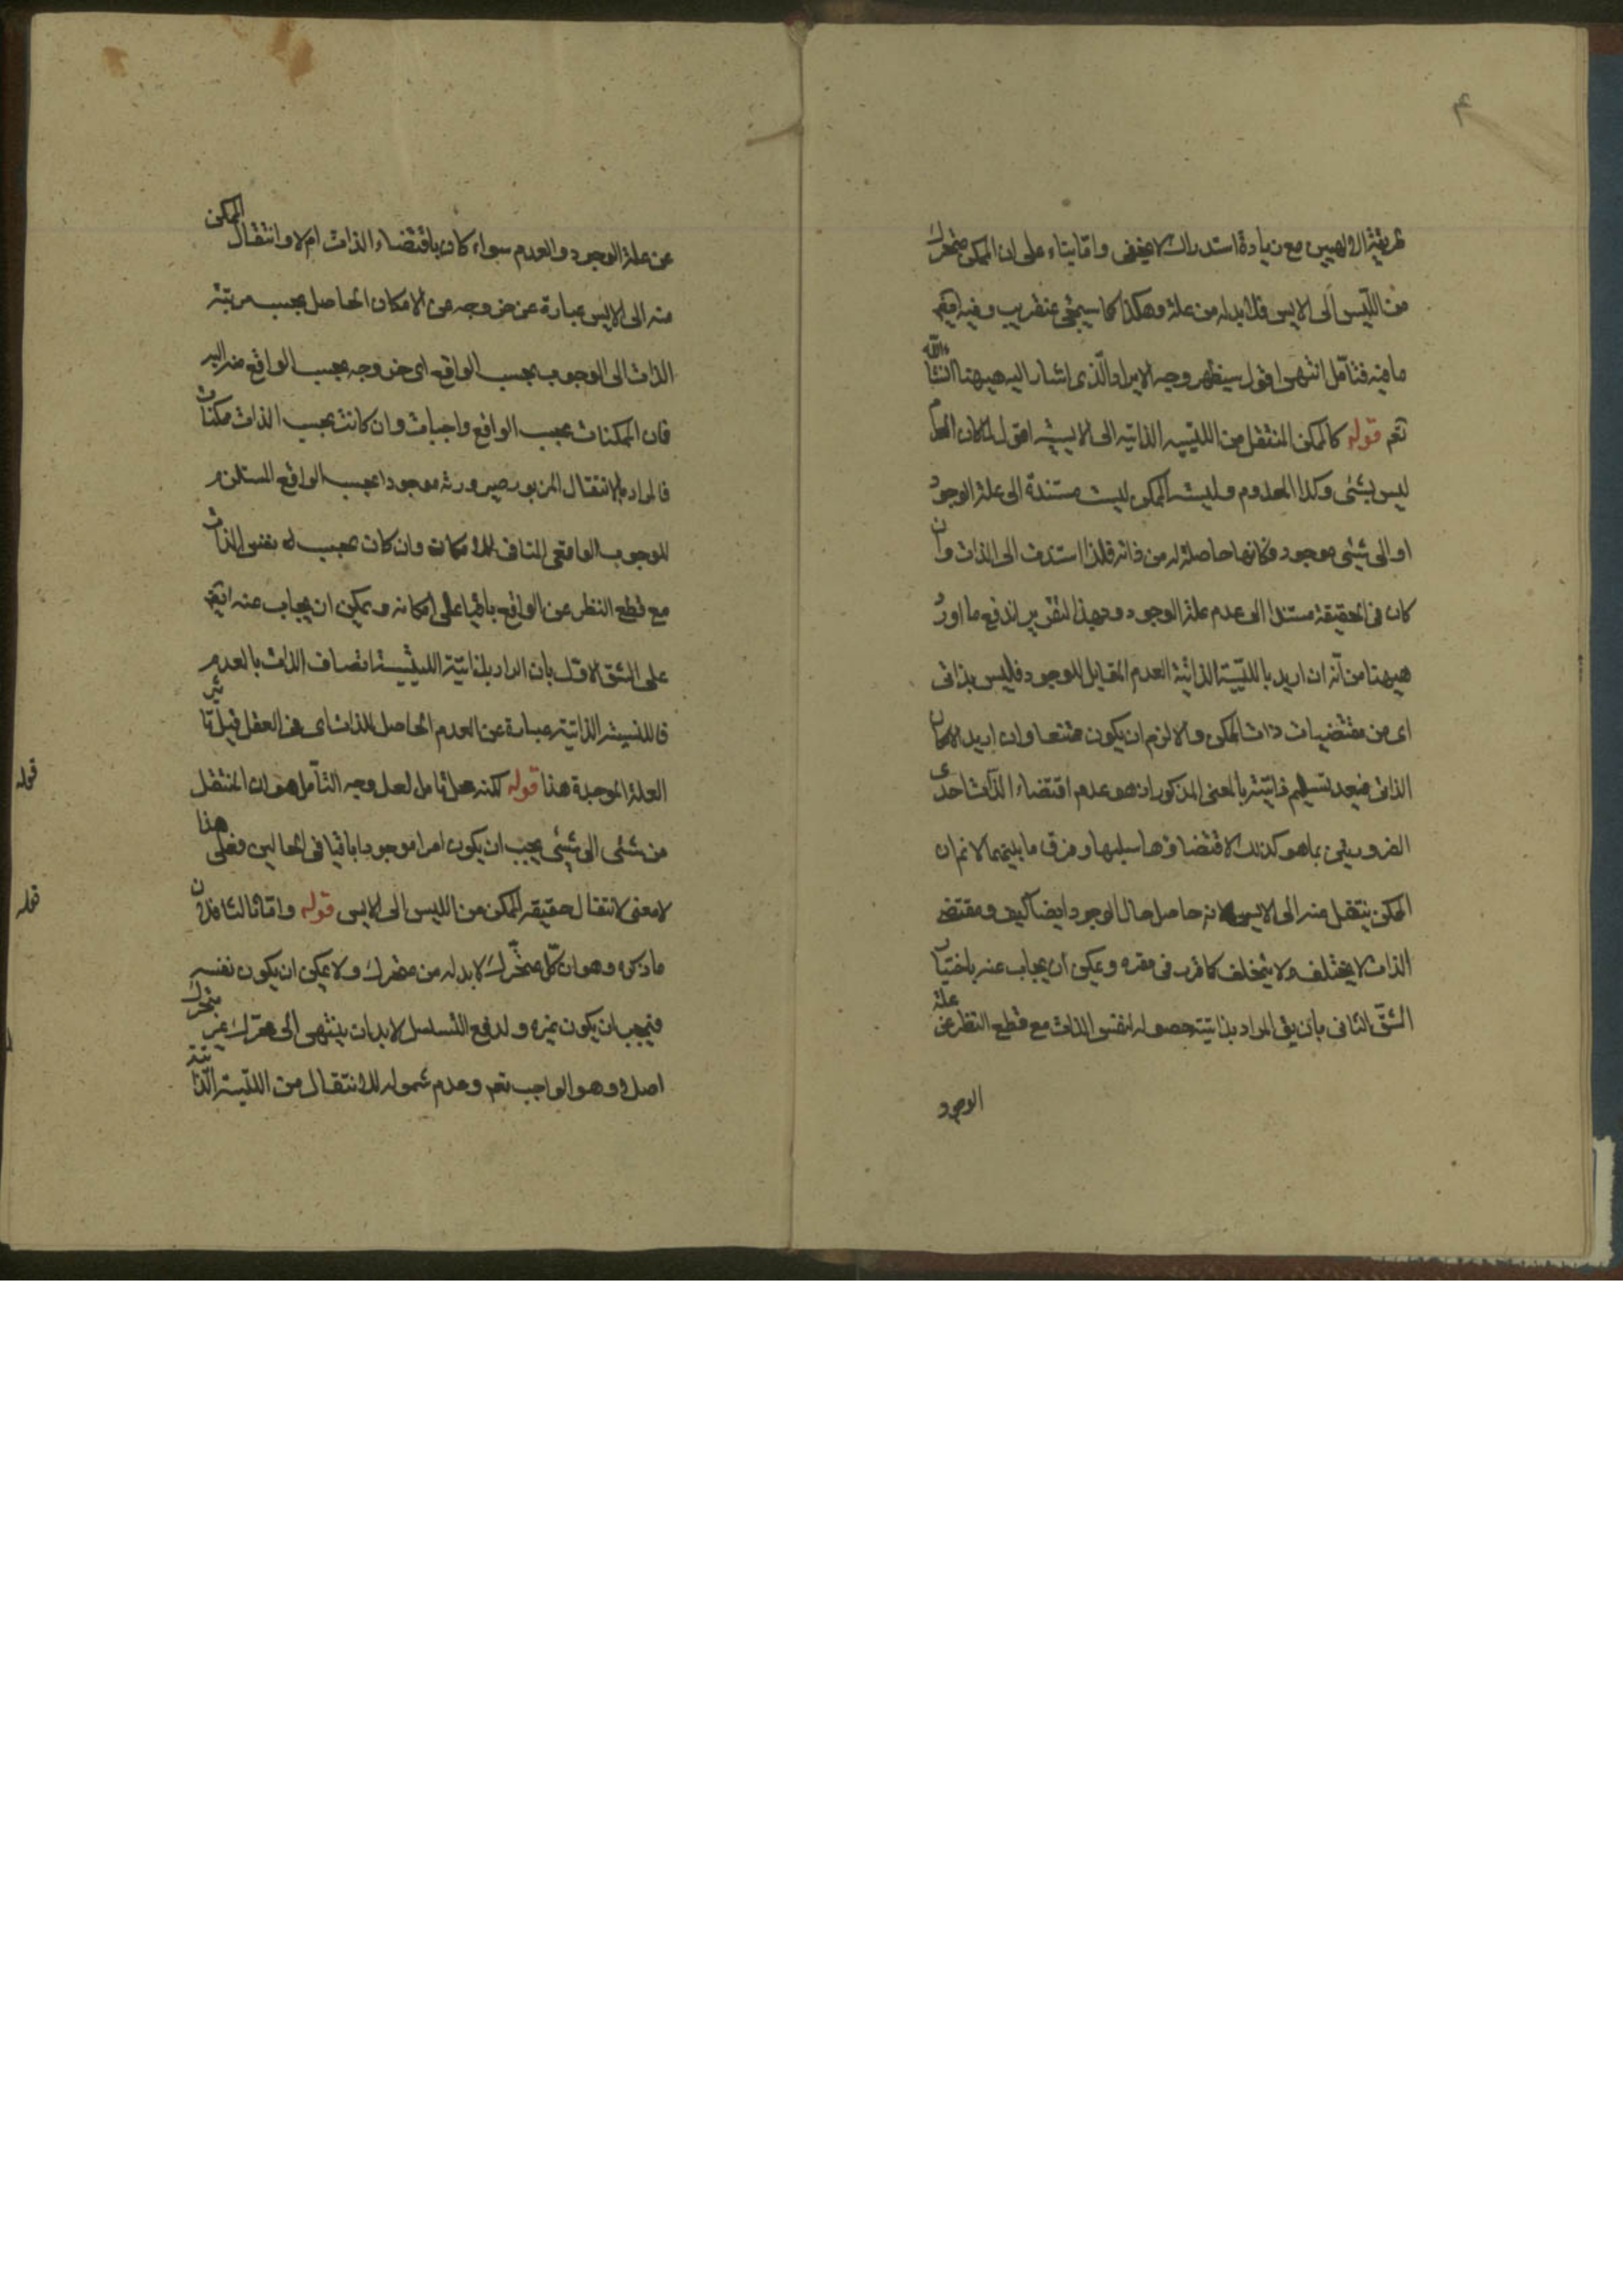 طريقة الالهيين مع زيادة استدراك لا يخفى واما بناء على ان الممكن متحرك
من الليس الى الايس فلا بد له من علة وهكذا كما سيجئ عنقريب وفيه ايضا
ما فيه فتامل انتهى اقول سيظهر وجه الايراد الذى اشار اليه هيهنا انشاء الله
تعم قوله كالممكن المنتقل من الليسية الذاتية الى الايسية اقول لما كان العدم
ليس بشئ وكذا المعدوم وليسية الممكن ليست مستندة الى علة الوجود
او الى شئ موجود فكانها حاصلة له من ذاته فلذا استدت الى الذات وان
كان فى الحقيقة مستندا الى عدم علة الوجود وبهذا التقرير اندفع ما اورد
هيهنا من انه ان اريد بالليسية الذاتية العدم المقابل للوجود فليس بذاتى
اى من مقتضيات ذات الممكن والا لزم ان يكون ممتنعا وان اريد الامكان
الذاتى فبعد تسليم ذاتيته بالمعنى المذكور اذ هو عدم اقتضاء الذات احدى
الضرورتين بما هو كذلك لا اقتضاؤها سلبها وفرق ما بينهما لا نم ان
الممكن ينتقل منه الى الايس لانه حاصل حال الوجود ايضا كيف ومقتضى
الذات لا يختلف ولا يتخلف كما قرر فى مقره ويمكن ان يجاب عنه باختيار
الشق الثانى بان يق المراد بذاتيته حصوله لنفس الذات مع قطع النظر عن علة
الوجود
عن علة الوجود والعدم سواء كان باقتضاء الذات ام لا وانتقال الممكن
منه الى الايس عبارة عن خروجه عن الامكان الحاصل بحسب مرتبة
الذات الى الوجوب بحسب الواقع اى خروجه بحسب الواقع منه اليه
فان الممكنات بحسب الواقع واجبات وان كانت بحسب الذات ممكنات
فالمراد بالانتقال المزبور صيرورته موجودا بحسب الواقع المستلزم
للوجوب الواقعى المنافى للامكان وان كان بحسب له بنفس الذات
مع قطع النظر عن الواقع باقيا على امكانه ويمكن ان يجاب عنه ايضا
على الشق الاول بان المراد بذاتية الليسية اتصاف الذات بالعدم
فالليسية الذاتية عبارة عن العدم الحاصل للذات اى فى العقل قبل تاثير
العلة الموجدة هذا قوله لكنه محل تامل لعل وجه التامل هو ان المنتقل
من شئ الى شئ يجب ان يكون امرا موجودا باقيا فى الحالين فعلى هذا
لا معنى لانتقال حقيقة الممكن من الليس الى الايس قوله واما ثالثا فلان
ما ذكره وهو ان كل متحرك لا بد له من محرك ولا يمكن ان يكون نفسه
فيجب ان يكون غيره ولدفع التسلسل لا بد ان ينتهى الى محرك غير متحرك
اصلا وهو الواجب تعم وعدم شموله للانتقال من الليسية الذاتية
قوله
قوله